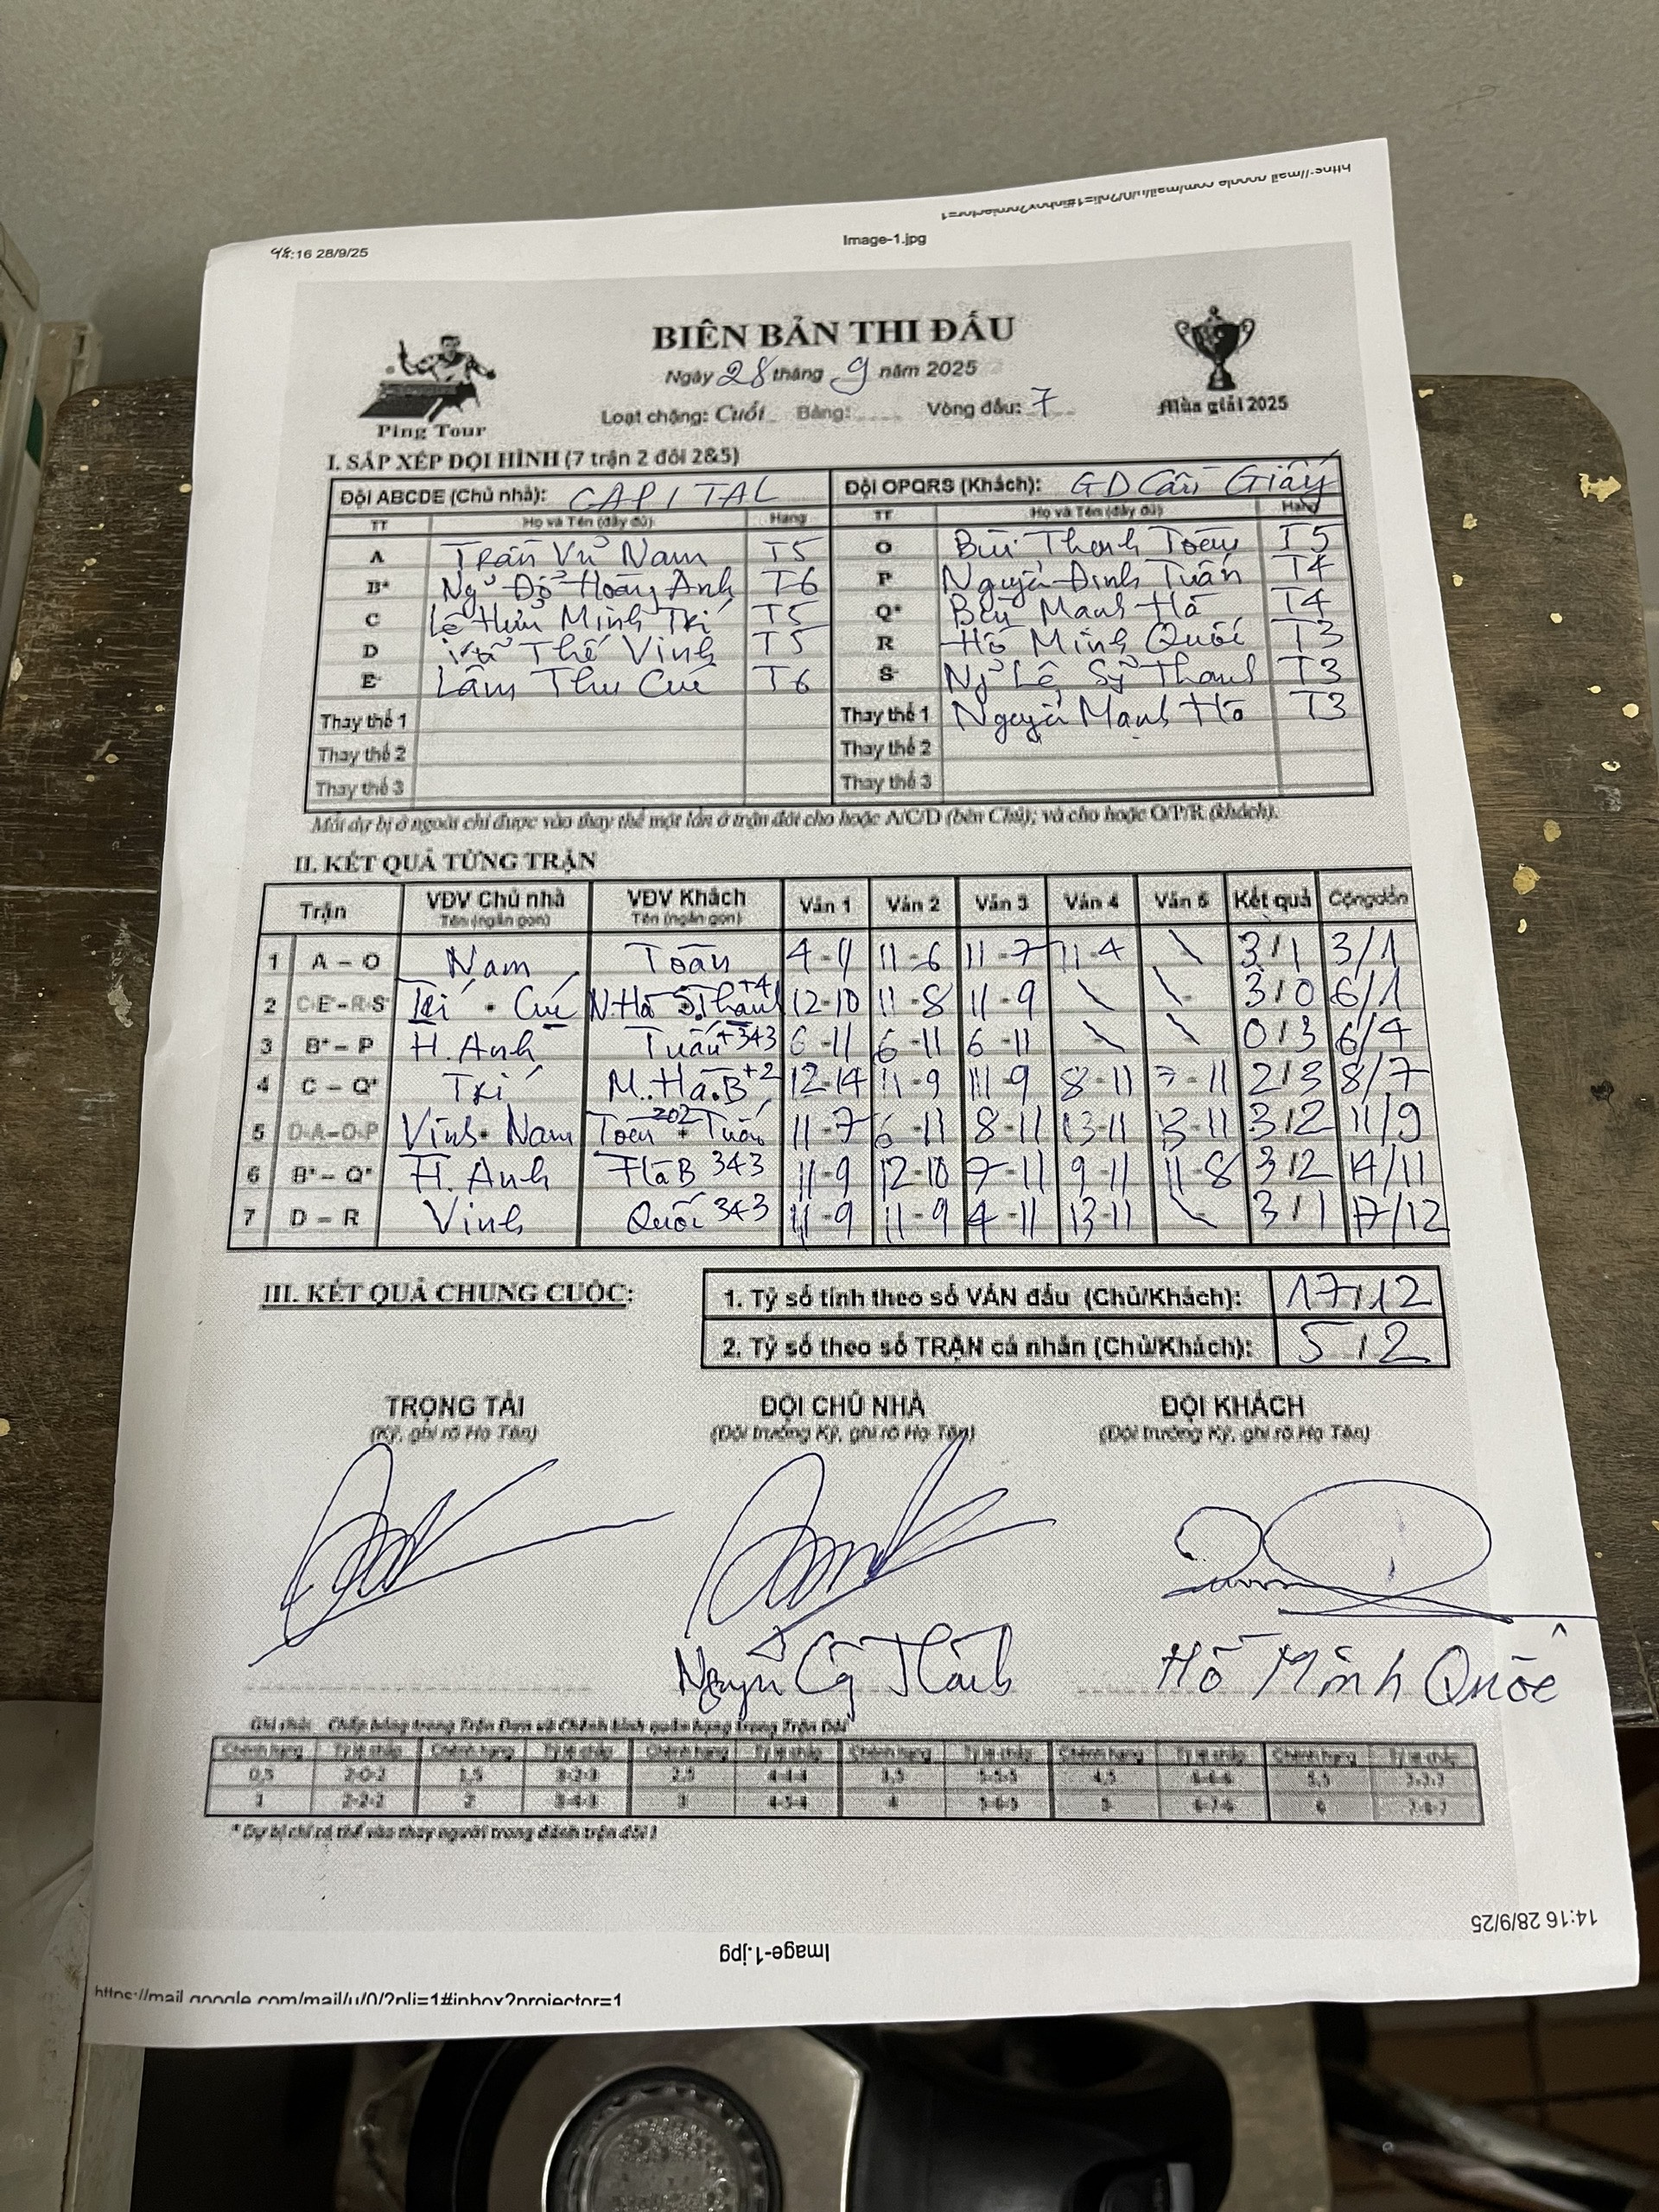 14:16 28/9/25
Image-1.jpg
https://mail.google.com/mail/u/0/?pli=1#inbox?projector=1
BIÊN BẢN THI ĐẤU
Ngày 28 tháng 9 năm 2025
Loạt chặng: Cuối Bảng: Vòng đấu: 7
Ping Tour
Mùa giải 2025
I. SẮP XẾP ĐỘI HÌNH (7 trận 2 đôi 2&5)
Đội ABCDE (Chủ nhà): CAPITAL Đội OPQRS (Khách): GD Cầu Giấy
TT Họ và Tên (đầy đủ) Hạng TT Họ và Tên (đầy đủ) Hạng
A Trần Vũ Nam T5 O Bùi Thanh Toàn T5
B* Ng Đỗ Hoàng Anh T6 P Nguyễn Đình Tuấn T4
C Lê Hữu Minh Trí T5 Q* Bùi Mạnh Hà T4
D Thế Vinh T5 R Hồ Minh Quốc T3
E* Lâm Thu Cúc T6 S* Ng Lê Sỹ Thanh T3
Thay thế 1 Thay thế 1 Nguyễn Mạnh Hà T3
Thay thế 2 Thay thế 2
Thay thế 3 Thay thế 3
Mỗi dự bị ở ngoài chỉ được vào thay thế một lần ở trận đôi cho hoặc A/C/D (bên Chủ); và cho hoặc O/P/R (khách).
II. KẾT QUẢ TỪNG TRẬN
Trận VĐV Chủ nhà VĐV Khách Ván 1 Ván 2 Ván 3 Ván 4 Ván 5 Kết quả Cộng dồn
Tên (ngắn gọn) Tên (ngắn gọn)
1 A – O Nam Toàn 4-11 11-6 11-7 11-4 \ 3/1 3/1
2 C·E*–R·S* Trí • Cúc N.Hà S.Thanh +4 12-10 11-8 11-9 \ \ 3/0 6/1
3 B* – P H. Anh Tuấn +343 6-11 6-11 6-11 \ \ 0/3 6/4
4 C – Q* Trí M.Hà.B +2 12-14 11-9 11-9 8-11 7-11 2/3 8/7
5 D·A–O·P Vinh • Nam Toàn 202 + Tuấn 11-7 6-11 8-11 13-11 13-11 3/2 11/9
6 B* – Q* H. Anh Hà B 343 11-9 12-10 7-11 9-11 11-8 3/2 14/11
7 D – R Vinh Quốc 343 11-9 11-9 4-11 13-11 \ 3/1 17/12
III. KẾT QUẢ CHUNG CUỘC:
1. Tỷ số tính theo số VÁN đấu (Chủ/Khách): 17/12
2. Tỷ số theo số TRẬN cá nhân (Chủ/Khách): 5/2
TRỌNG TÀI ĐỘI CHỦ NHÀ ĐỘI KHÁCH
(Ký, ghi rõ Họ Tên) (Đội trưởng Ký, ghi rõ Họ Tên) (Đội trưởng Ký, ghi rõ Họ Tên)
Hồ Minh Quốc
Ghi chú: Chấp bóng trong Trận Đơn và Chênh bình quân hạng trong Trận Đôi
Chênh hạng Tỷ lệ chấp Chênh hạng Tỷ lệ chấp Chênh hạng Tỷ lệ chấp Chênh hạng Tỷ lệ chấp Chênh hạng Tỷ lệ chấp Chênh hạng Tỷ lệ chấp
0,5 2-0-2 1,5 3-2-3 2,5 4-4-4 3,5 5-5-5 4,5 6-6-6 5,5 7-7-7
1 2-2-2 2 3-4-3 3 4-5-4 4 5-6-5 5 6-7-6 6 7-8-7
* Dự bị chỉ có thể vào thay người trong đánh trận đôi !
14:16 28/9/25
Image-1.jpg
https://mail.google.com/mail/u/0/?pli=1#inbox?projector=1